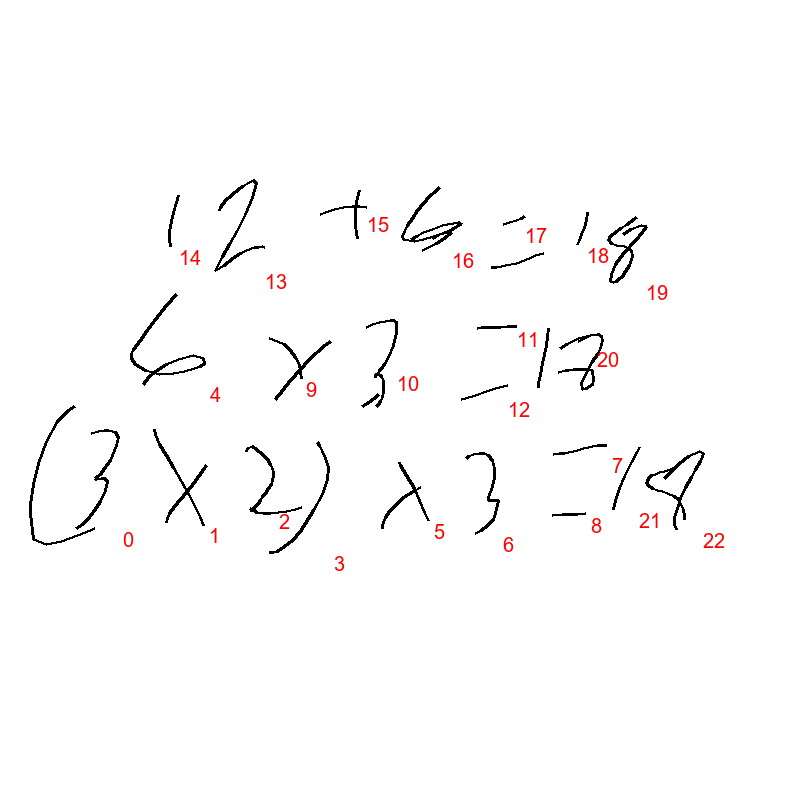 12 + 6 = 18
14 13 15 16 17 18 19
6 × 3 = 18
4 9 10 11 12 20
(3 × 2) × 3 = 18
0 1 2 3 5 6 7 8 21 22